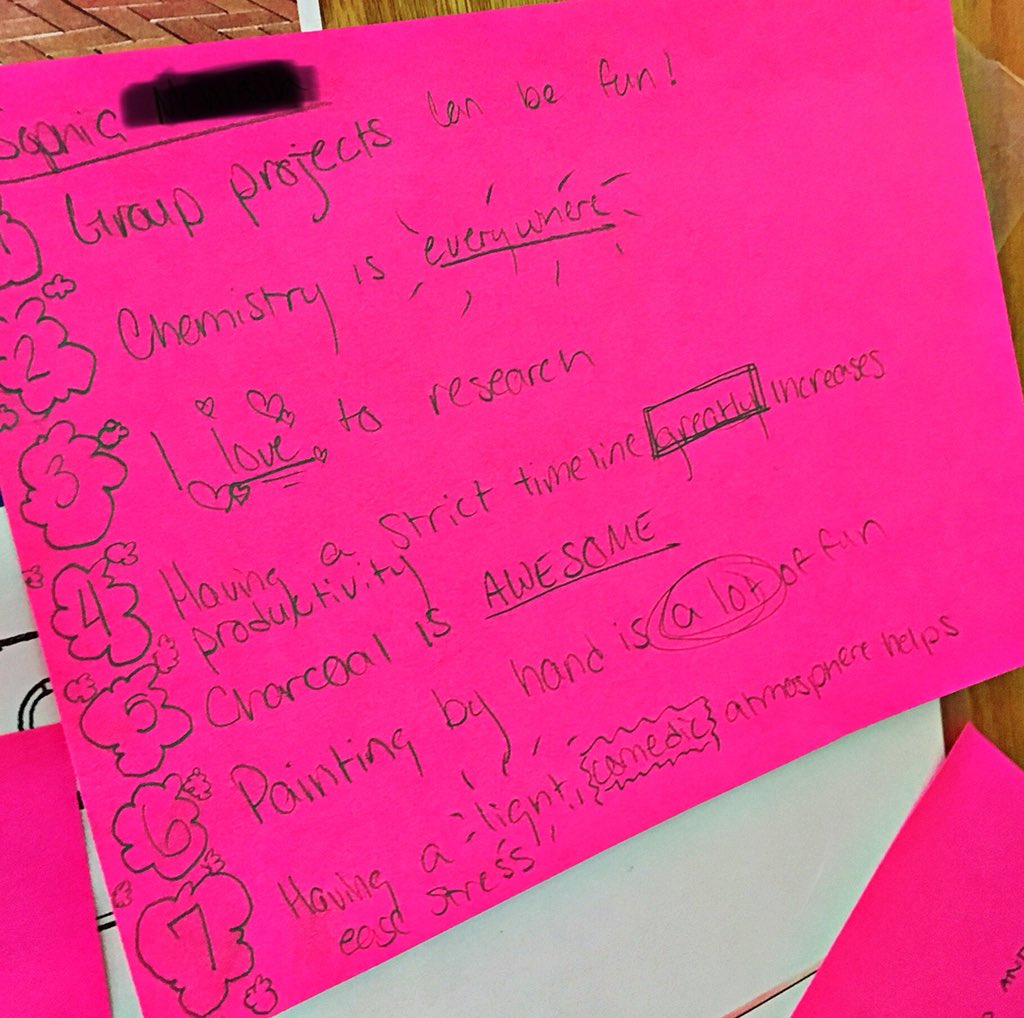 Sophia
1 Group projects can be fun!
2 Chemistry is everywhere
3 I love to research
4 Having a strict timeline greatly increases
produktivity
5 Charcoal is AWESOME
6 Painting by hand is a lot of fun
7 Having a light, comedic atmosphere helps
ease stress
AND